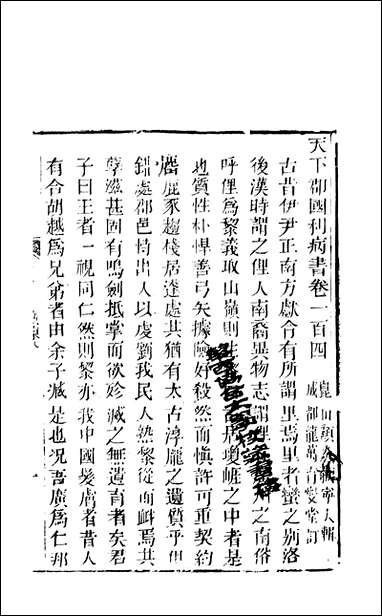 天下郡國利病書卷一百四
崑山顧炎武寧人輯
成都龍萬育燮堂訂
古昔伊尹正南方獻令有所謂里焉里者蠻之別洛
後漢時謂之俚人南裔異物志謂俚之南俗
呼俚爲黎義取山嶺則生瓊崖之中者是
也質性朴悍善弓矢據險好殺然而愼許可重契約
居鹿豕趨棧居逵處其猶有太古淳龐之遺質乎但
錯處郡邑恃出人以虔劉我民人熟黎從而衅焉其
孽滋甚固有鳴劍抵掌而欲殄滅之無遺育者矣君
子曰王者一視同仁然則黎亦我中國髮膚者昔人
有合胡越爲兄弟者由余子臧是也況吾廣爲仁那